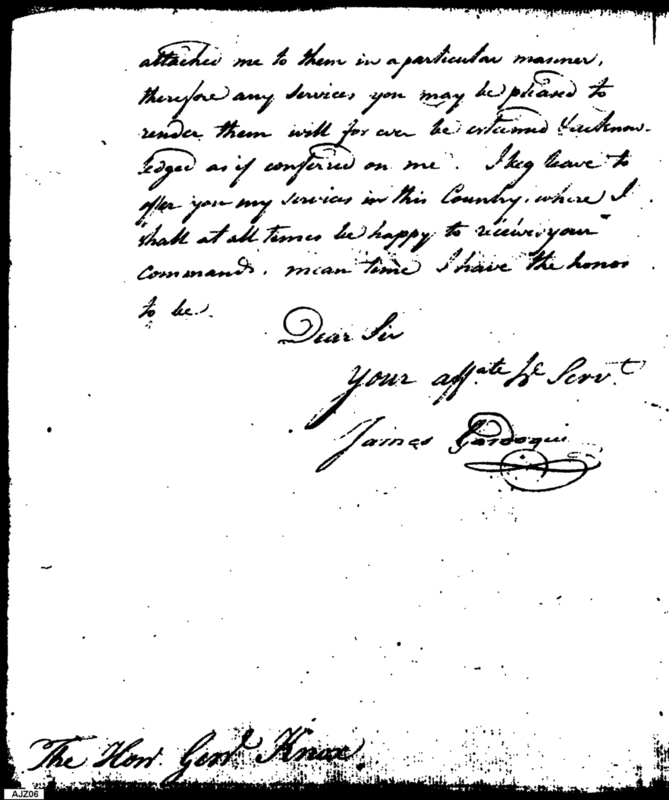 attached me to them in a particular manner,
therefore any services you may be pleased to
render them will for ever be esteemed & acknow-
ledged as if conferred on me. I beg leave to
offer you my services in this Country, where I
shall at all times be happy to receive your
commands. mean time I have the honor
to be.
Dear Sir
Your aff.ate h.e Serv.t
James Gardoqui
The Hon. Gen.l Knox.
AJZ06